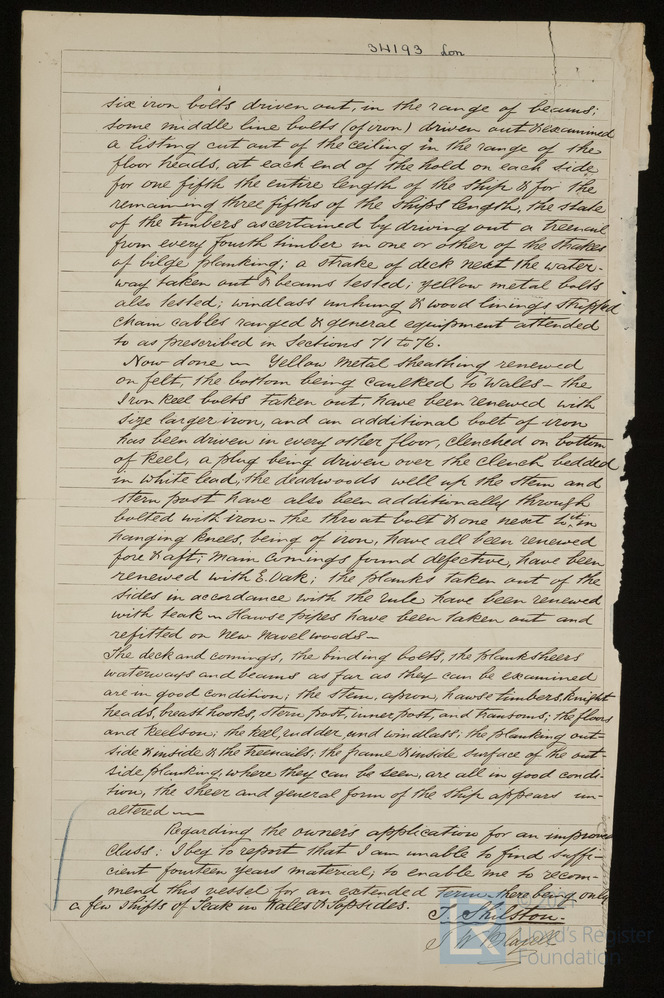 34193 Lon
six iron bolts driven out, in the range of beams;
some middle line bolts (of iron) driven out & examined
a listing cut out of the ceiling in the range of the
floor heads, at each end of the hold on each side
for one fifth the entire length of the ship & for the
remaining three fifths of the ships length, the state
of the timbers ascertained by driving out a treenail
from every fourth timber in one or other of the strakes
of bilge planking; a strake of deck next the water-
way taken out & beams tested; yellow metal bolts
also tested; windlass unhung & wood linings stripped
chain cables ranged & general equipment attended
to as prescribed in Sections 71 to 76.
Now done — Yellow Metal sheathing renewed
on felt, the bottom being caulked to Wales – the
Iron keel bolts taken out, have been renewed with
size larger iron, and an additional bolt of iron
has been driven in every other floor, clenched on bottom
of keel, a plug being driven over the clench bedded
in white lead, the deadwoods well up the stem and
stern post have also been additionally through
bolted with iron – the throat bolt & one next to it, in
hanging knees, being of iron, have all been renewed
fore & aft; main comings found defective, have been
renewed with E. Oak; the planks taken out of the
sides in accordance with the rule have been renewed
with teak — Hawse pipes have been taken out and
refitted on New Navel woods –
The deck and comings, the binding bolts, the planksheers
waterways and beams as far as they can be examined
are in good condition; the stem, apron, hawse timbers, Knight
heads, breast hooks, stern post, inner post, and transoms; the floors
and keelson; the keel, rudder, and windlass; the planking out-
side & inside & the treenails, the frame & inside surface of the out-
side planking, where they can be seen, are all in good condi-
tion, the sheer and general form of the ship appears un-
altered —
Regarding the owner's application for an improved
class: I beg to report that I am unable to find suffi-
cient fourteen years material, to enable me to recom-
mend this vessel for an extended term there being only
a few shifts of Teak in Wales & Topsides.
T. Shilston.
Lloyd's Register
Foundation